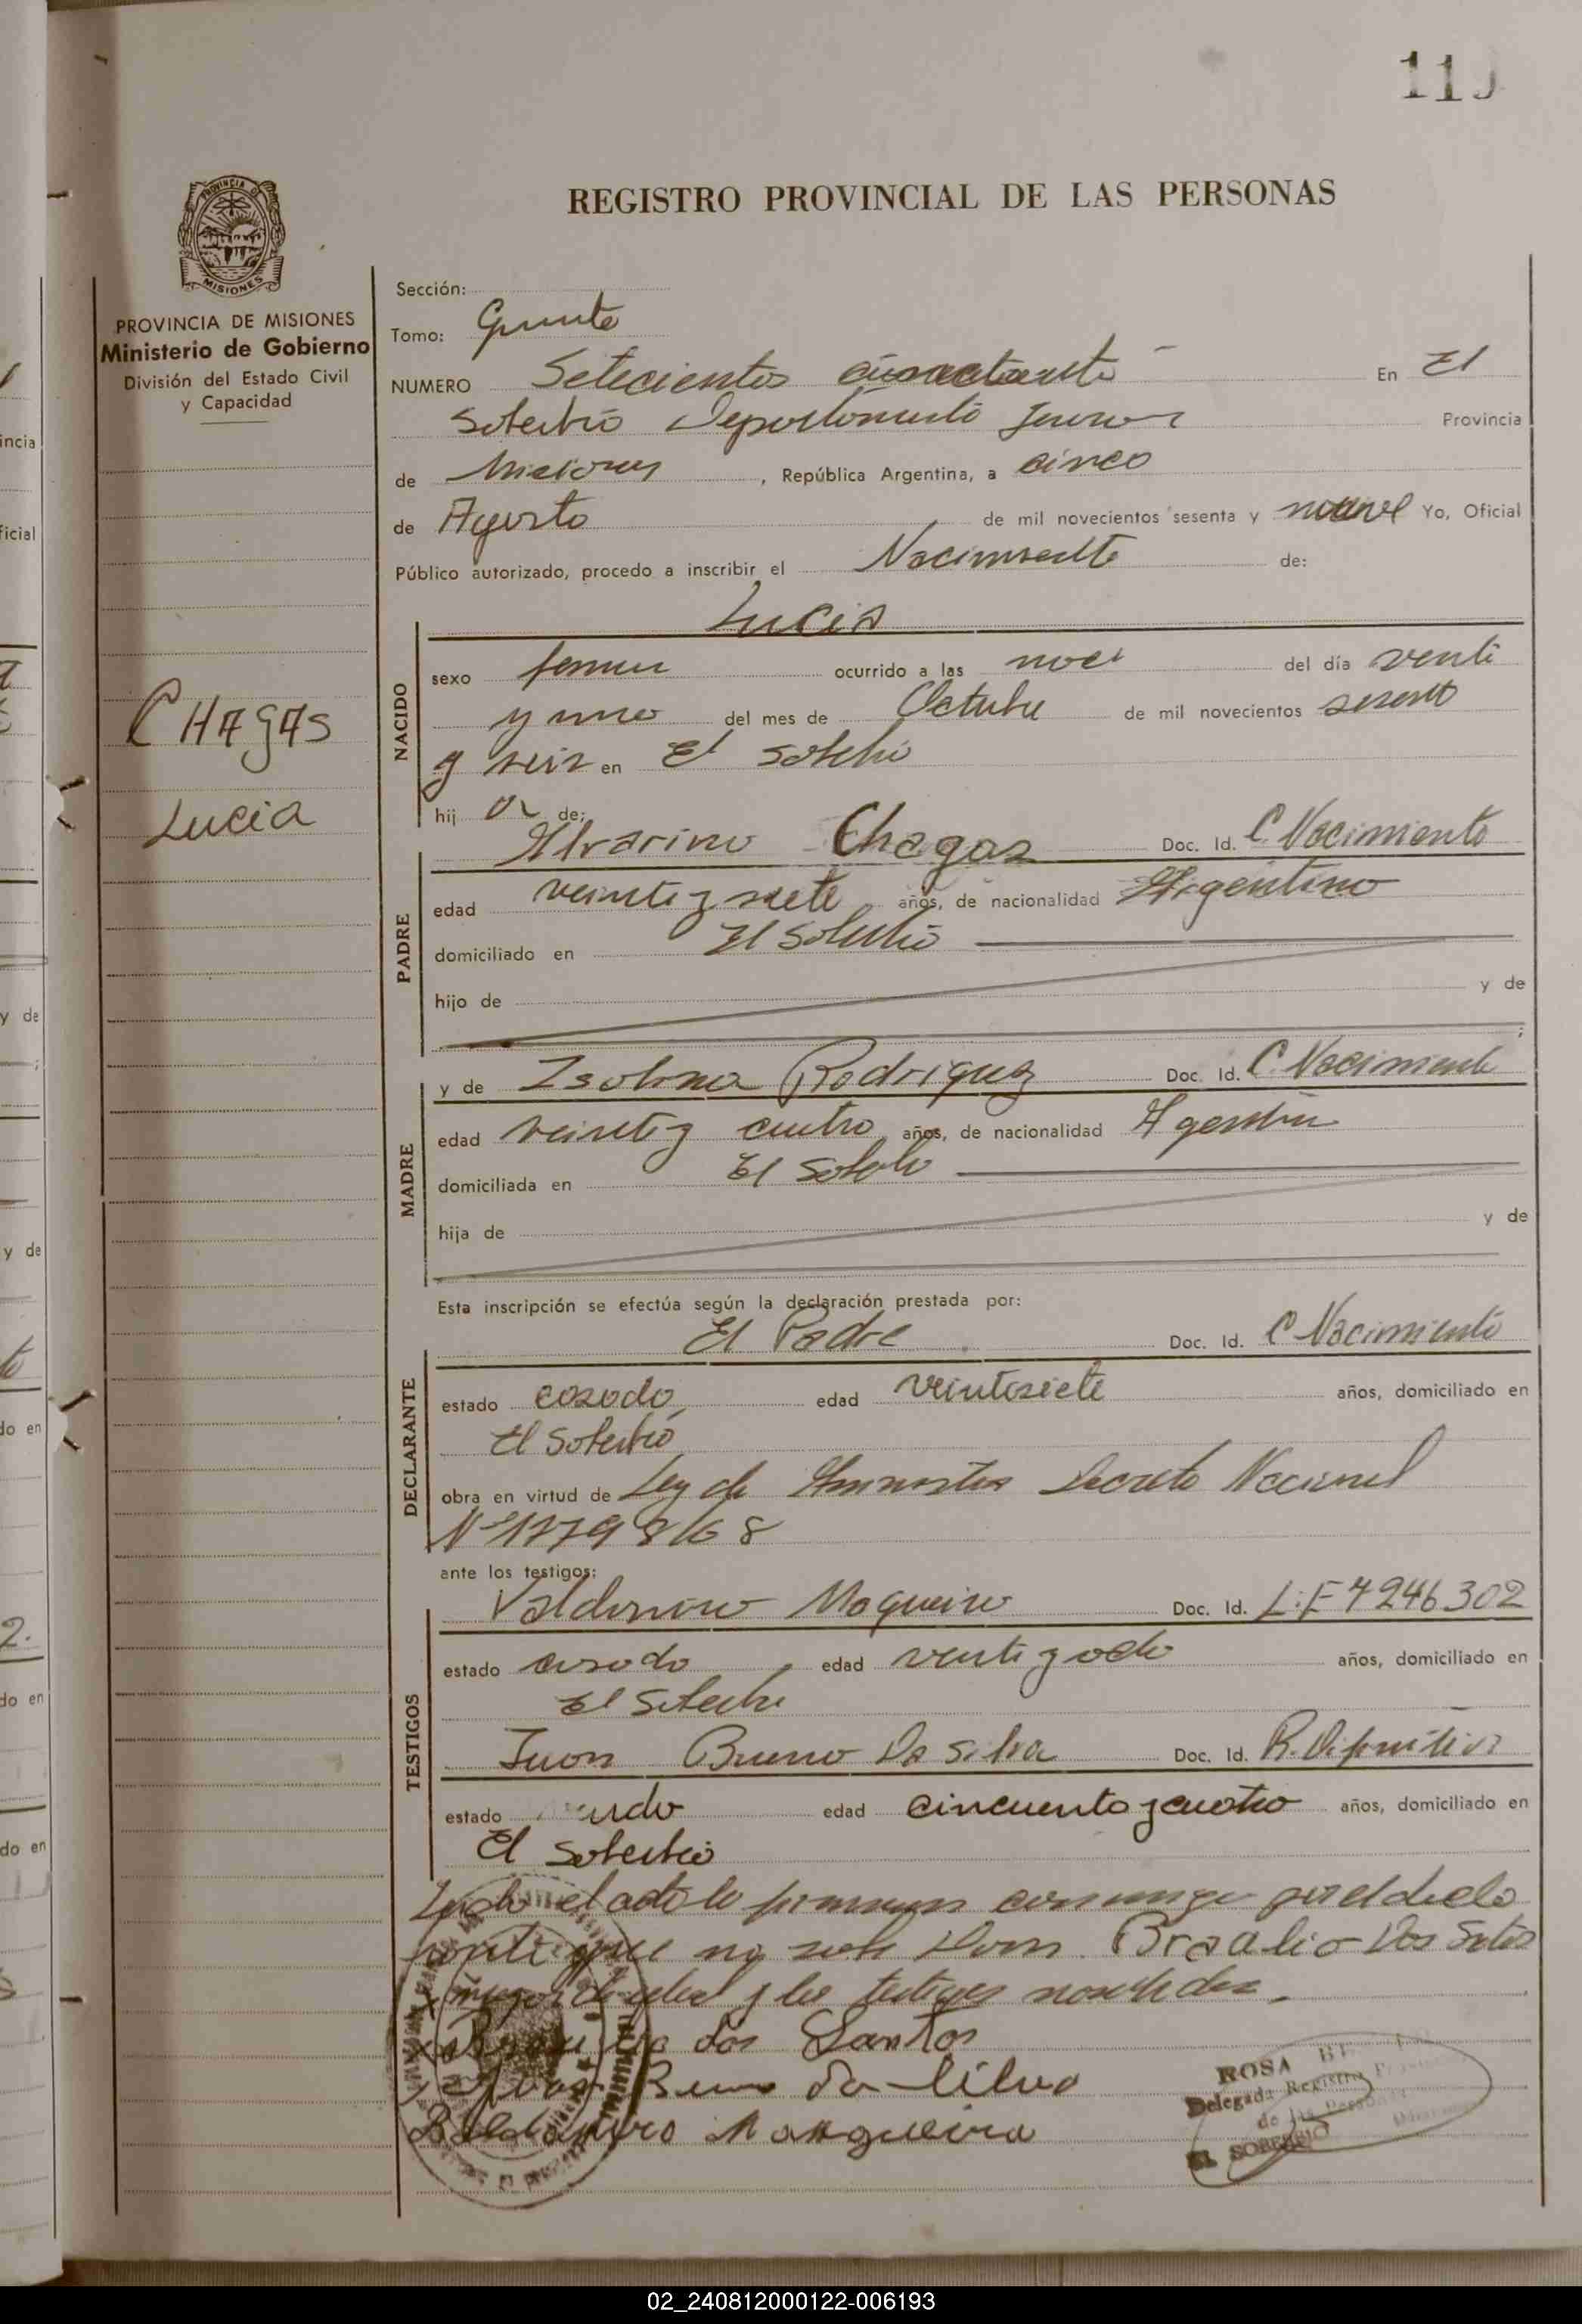 REGISTRO PROVINCIAL DE LAS PERSONAS
PROVINCIA DE MISIONES
Ministerio de Gobierno
División del Estado Civil
y Capacidad
CHAgAS
Lucia
Sección:
Tomo: Quinto
NUMERO Setecientos En El
Soberbio Departamento Provincia
de Misiones, República Argentina, a cinco
de Agosto de mil novecientos sesenta y nueve Yo, Oficial
Público autorizado, procedo a inscribir el Nacimiento de:
Lucia
NACIDO
sexo femen ocurrido a las del día venti
y uno del mes de Octubre de mil novecientos sesenta
y seis en El Soberbio
hij a de:
PADRE
Alvarino Chagas Doc. Id. C Nacimiento
edad veinti y siete años, de nacionalidad Argentino
domiciliado en El Soberbio
hijo de y de
MADRE
y de Isolina Rodriguez Doc. Id. C. Nacimiento
edad veinti y cuatro años, de nacionalidad
domiciliada en El Soberbio
hija de y de
Esta inscripción se efectúa según la declaración prestada por:
DECLARANTE
El Padre Doc. Id. C Nacimiento
estado casado edad veintisiete años, domiciliado en
El Soberbio
obra en virtud de Ley de Amnistia Decreto Nacional
Nº 17798/68
ante los testigos:
TESTIGOS
Doc. Id. L.E 7246302
estado casado edad venti y ocho años, domiciliado en
El Soberbio
Juan Bueno Da Silva Doc. Id. R. Difinitiva
estado edad cincuenta y cuatro años, domiciliado en
El Soberbio
Leida el acta la firman conmigo por el
que no sabe Don Braalio Dos Santos
mayor de edad y los testigos nombrados.
dos Santos
Bueno da Silva
Mangueira
ROSA
Delegada Registro
de las Personas
EL SOBERBIO
02_240812000122-006193